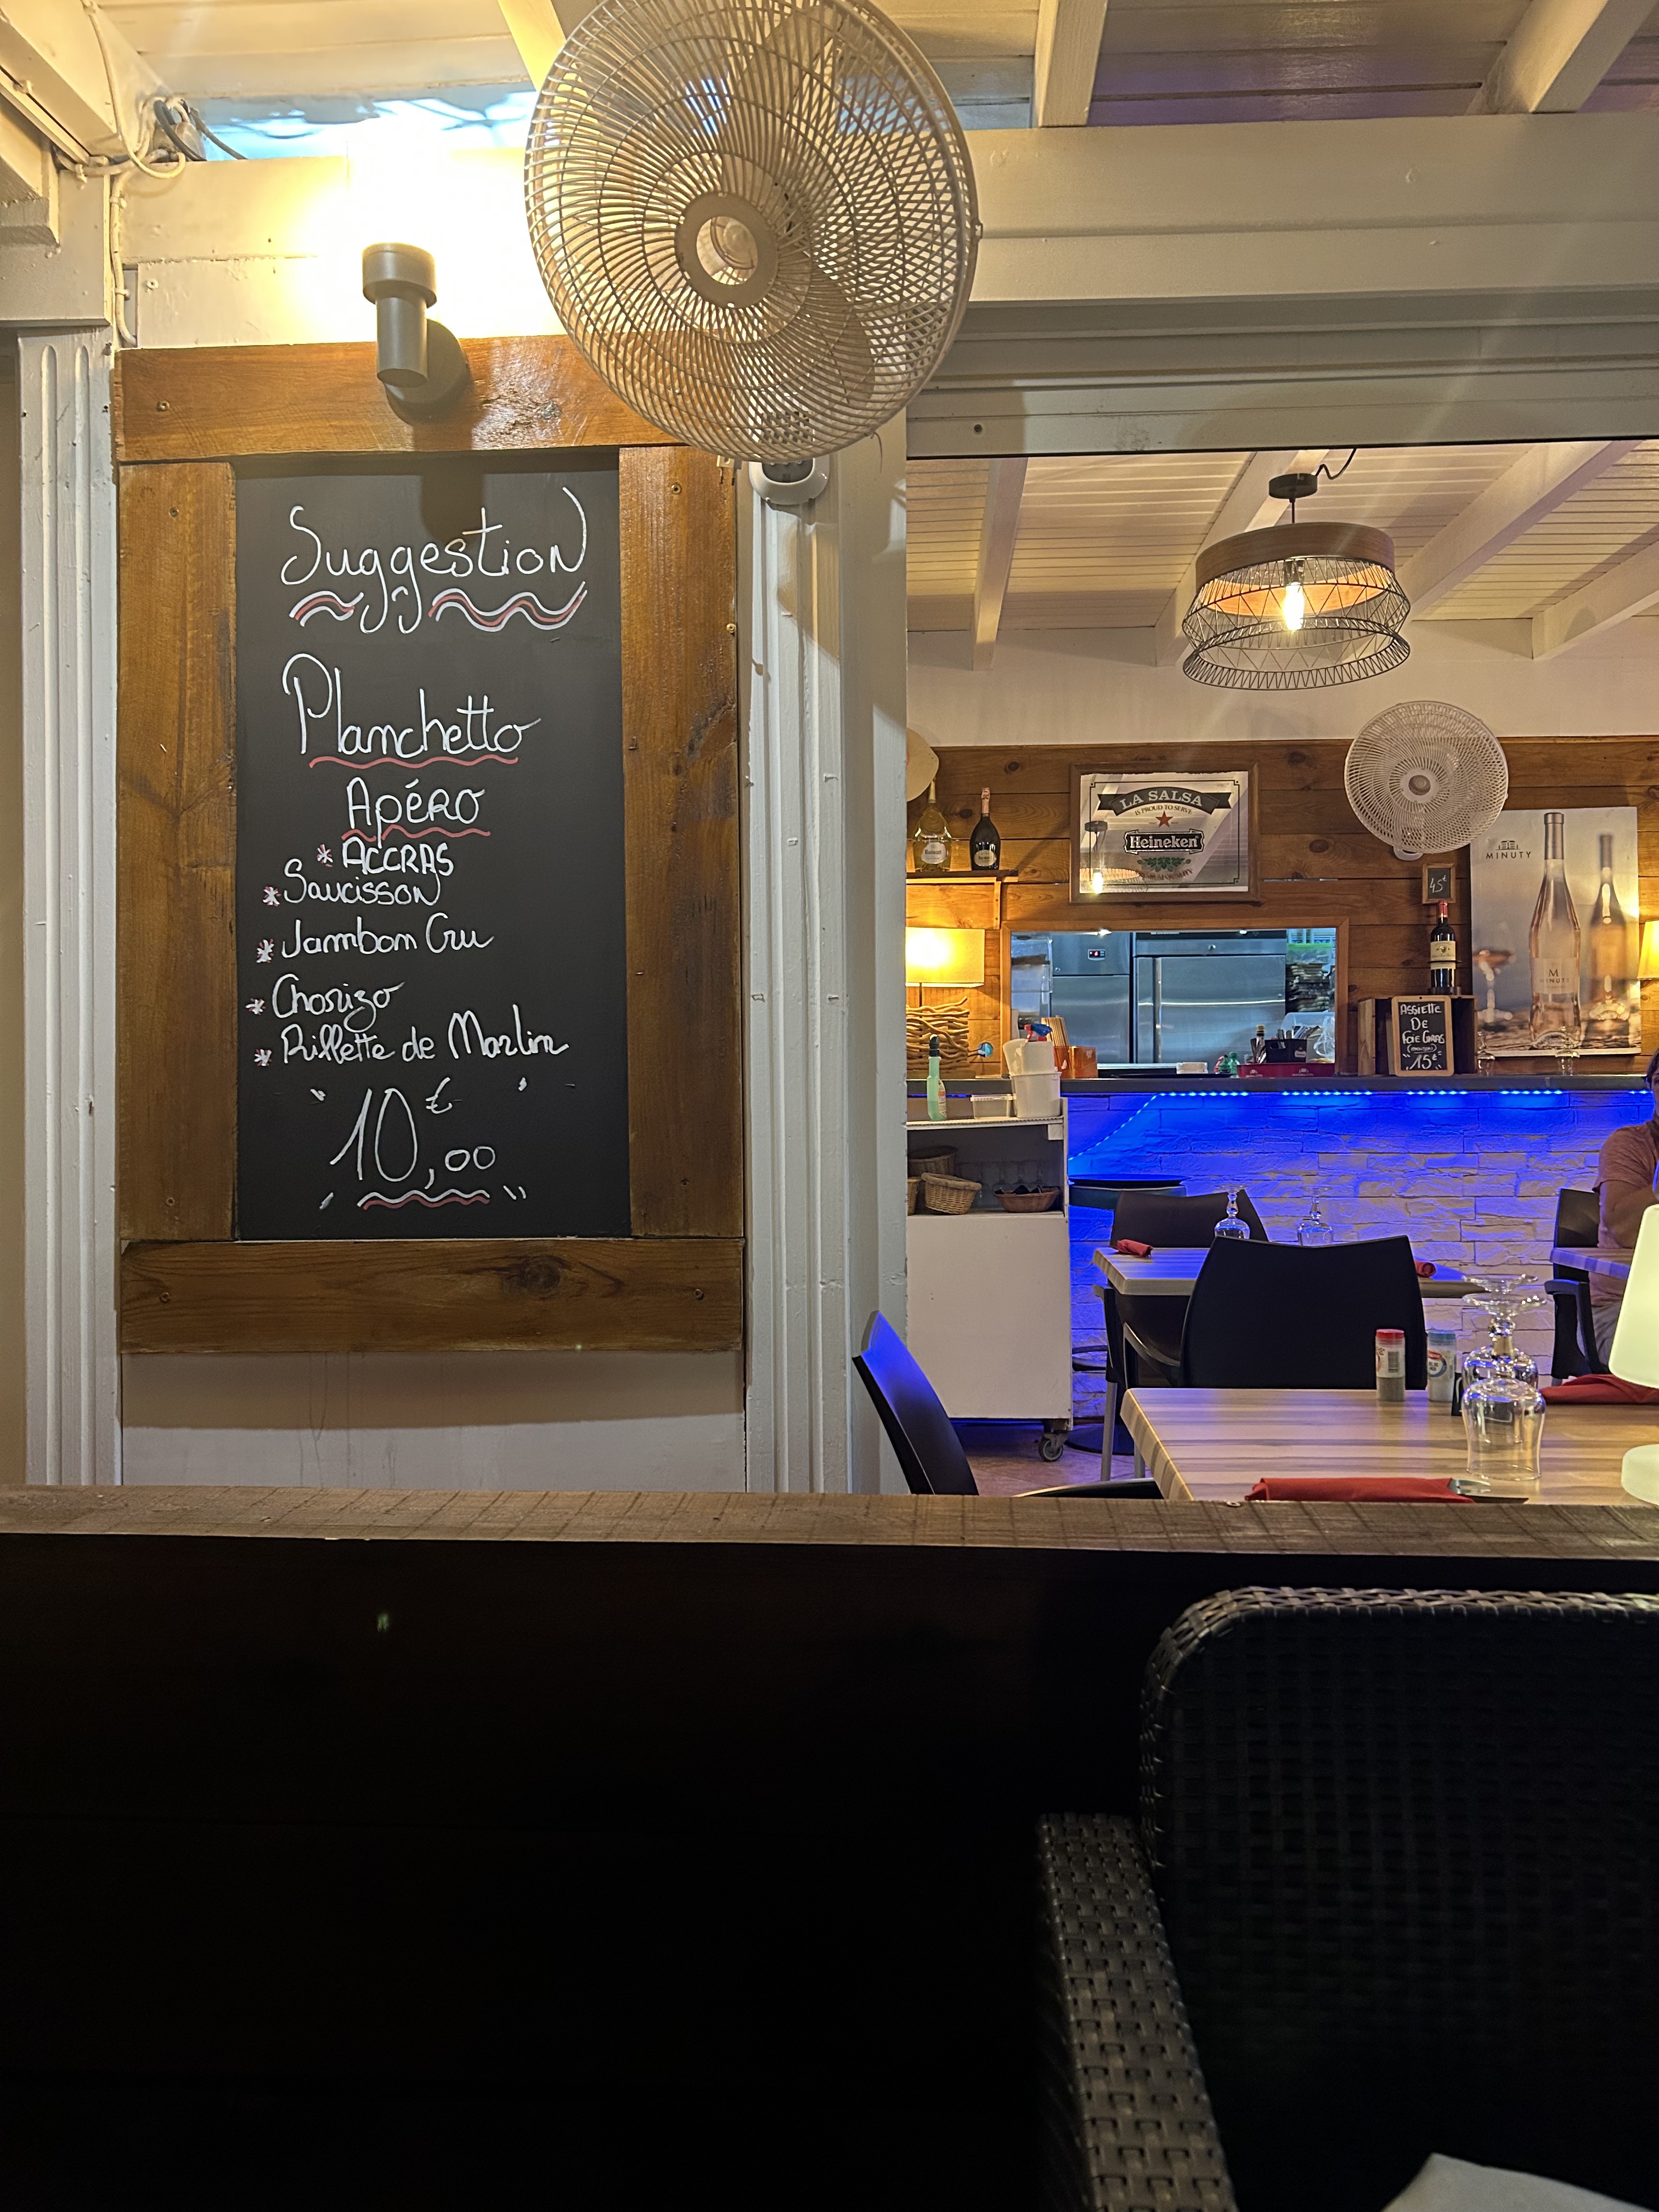 Suggestion
Planchetto
Apéro
* ACCRAS
* Saucisson
* Jambon Cru
* Chorizo
* Rillette de Marlin
" 10€,00 "
LA SALSA
IS PROUD TO SERVE
Heineken
MINUTY
45€
M
MINUTY
ASSIETTE
DE
FOIE GRAS
15€